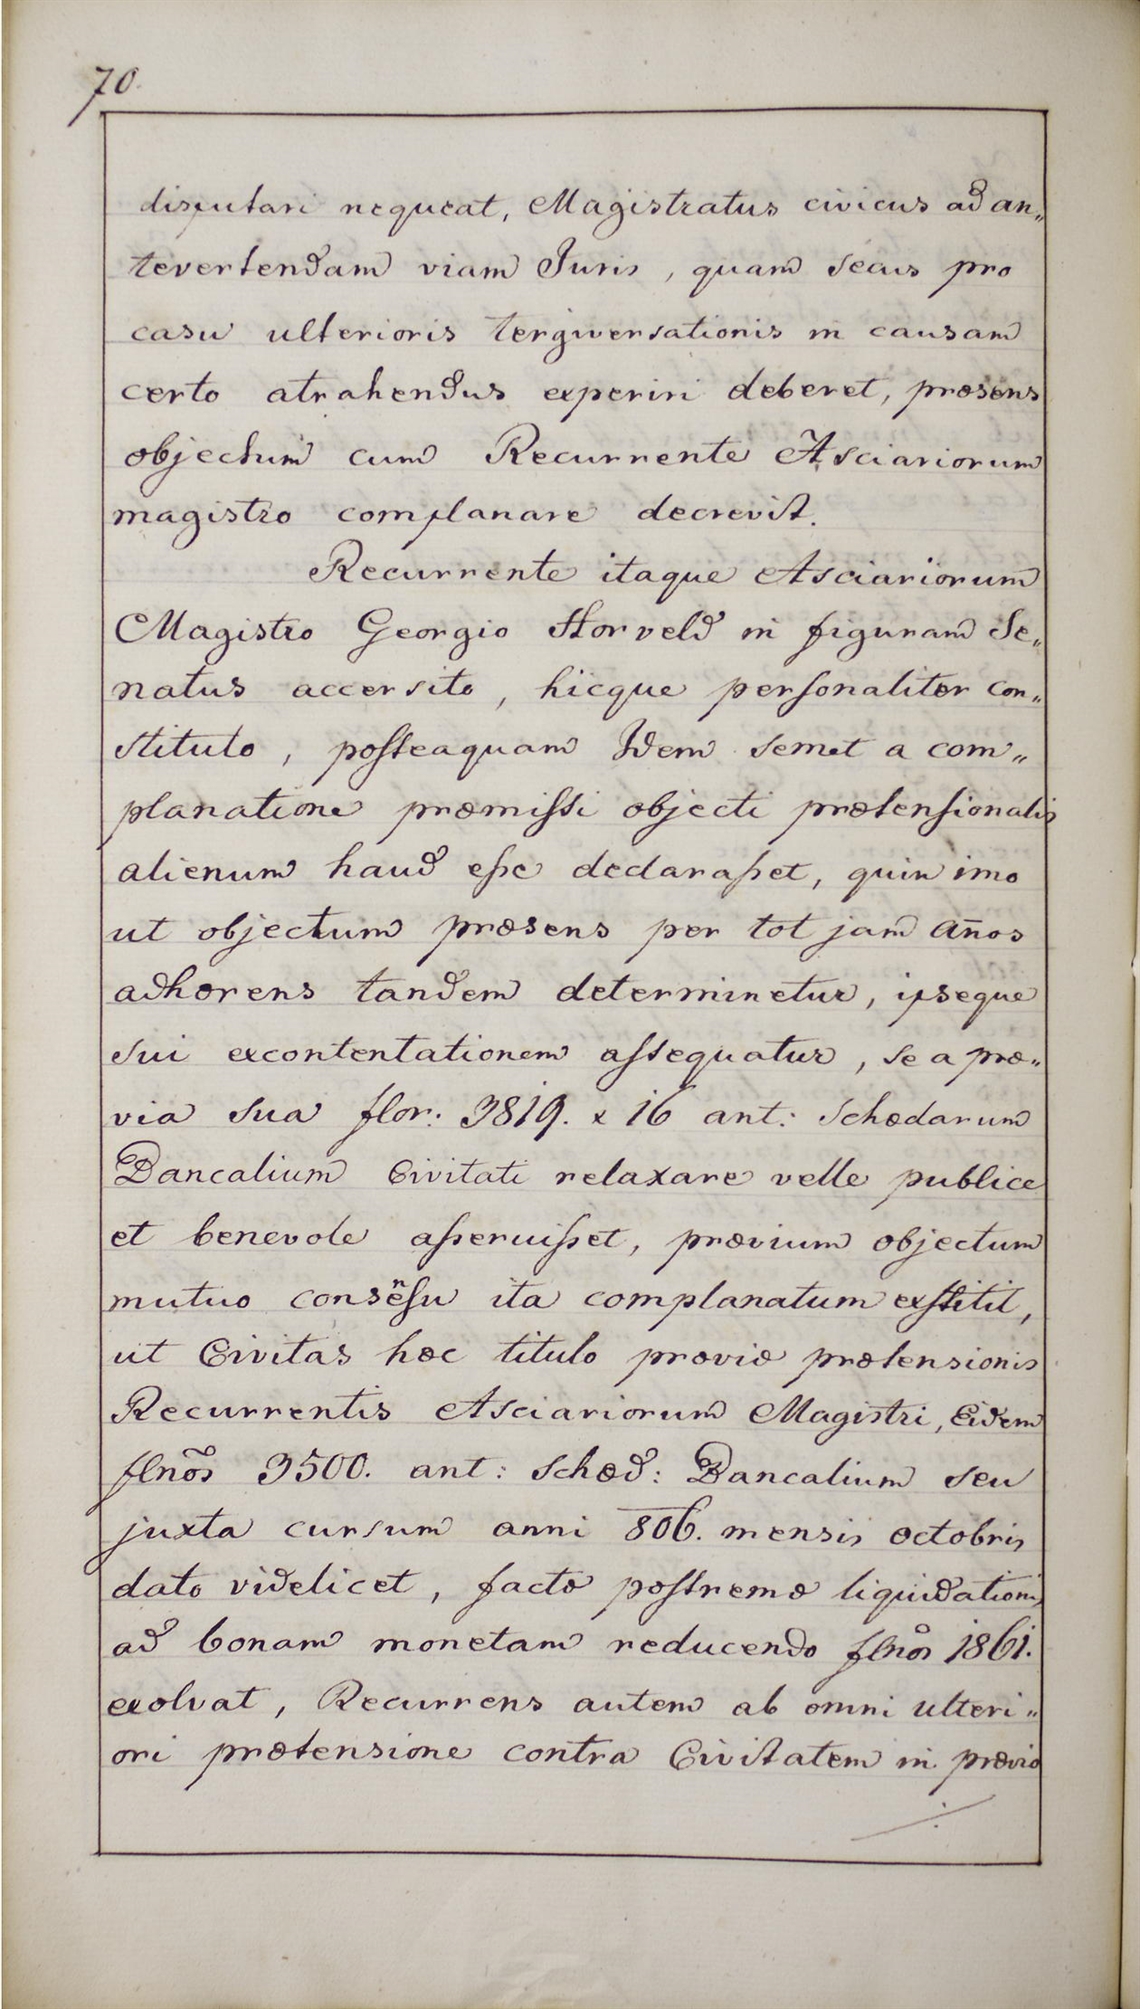 70.
disputari nequeat, Magistratus civicus ad an„
tevertendam viam Juris, quam secus pro
casu ulterioris tergiversationis in causam
certo atrahendus experiri deberet, præsens
objectum cum Recurrente Asciariorum
magistro complanare decrevit.
Recurrente itaque Asciariorum
Magistro Georgio Horveld in figuram Se„
natus accersito, hicque personaliter con„
stituto, posteaquam Idem semet a com„
planatione præmissi objecti prætensionalis
alienum haud esse declarasset, quin imo
ut objectum præsens per tot jam años
adhærens tandem determinetur, ipseque
sui excontentationem assequatur, se a præ„
via sua flor: 3819. x 16 ant: Schedarum
Bancalium Civitati relaxare velle publice
et benevole asseruisset, prævium objectum
mutuo consensu ita complanatum exstitit,
ut Civitas hoc titulo præviæ prætensionis
Recurrentis Asciariorum Magistri, Eidem
flnõs 3500. ant: Sched: Bancalium seu
juxta cursum anni 806. mensis octobris
dato videlicet, factæ postremæ liquidationis
ad bonam monetam reducendo flnõs 1861.
exolvat, Recurrens autem ab omni ulteri„
ori prætensione contra Civitatem in prævio